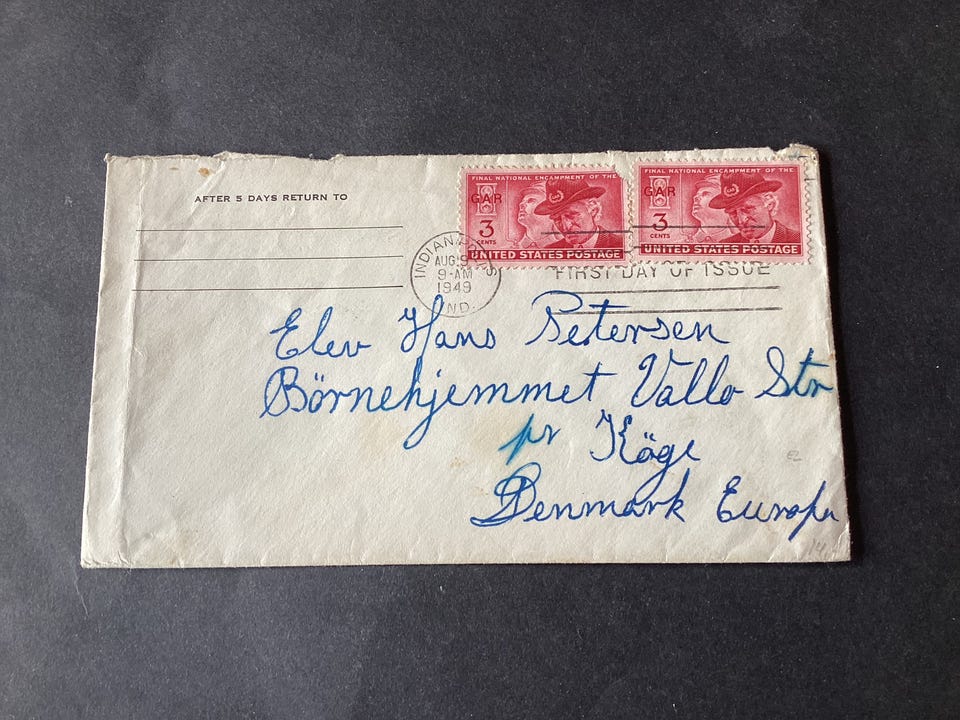 AFTER 5 DAYS RETURN TO
FINAL NATIONAL ENCAMPMENT OF THE
GAR
3
CENTS
UNITED STATES POSTAGE
FINAL NATIONAL ENCAMPMENT OF THE
GAR
3
CENTS
UNITED STATES POSTAGE
INDIANAPOLIS
AUG 9
9-AM
1949
IND.
FIRST DAY OF ISSUE
Elev Hans Petersen
Börnehjemmet Vallo Str
pr Köge
Denmark Europa
EZ